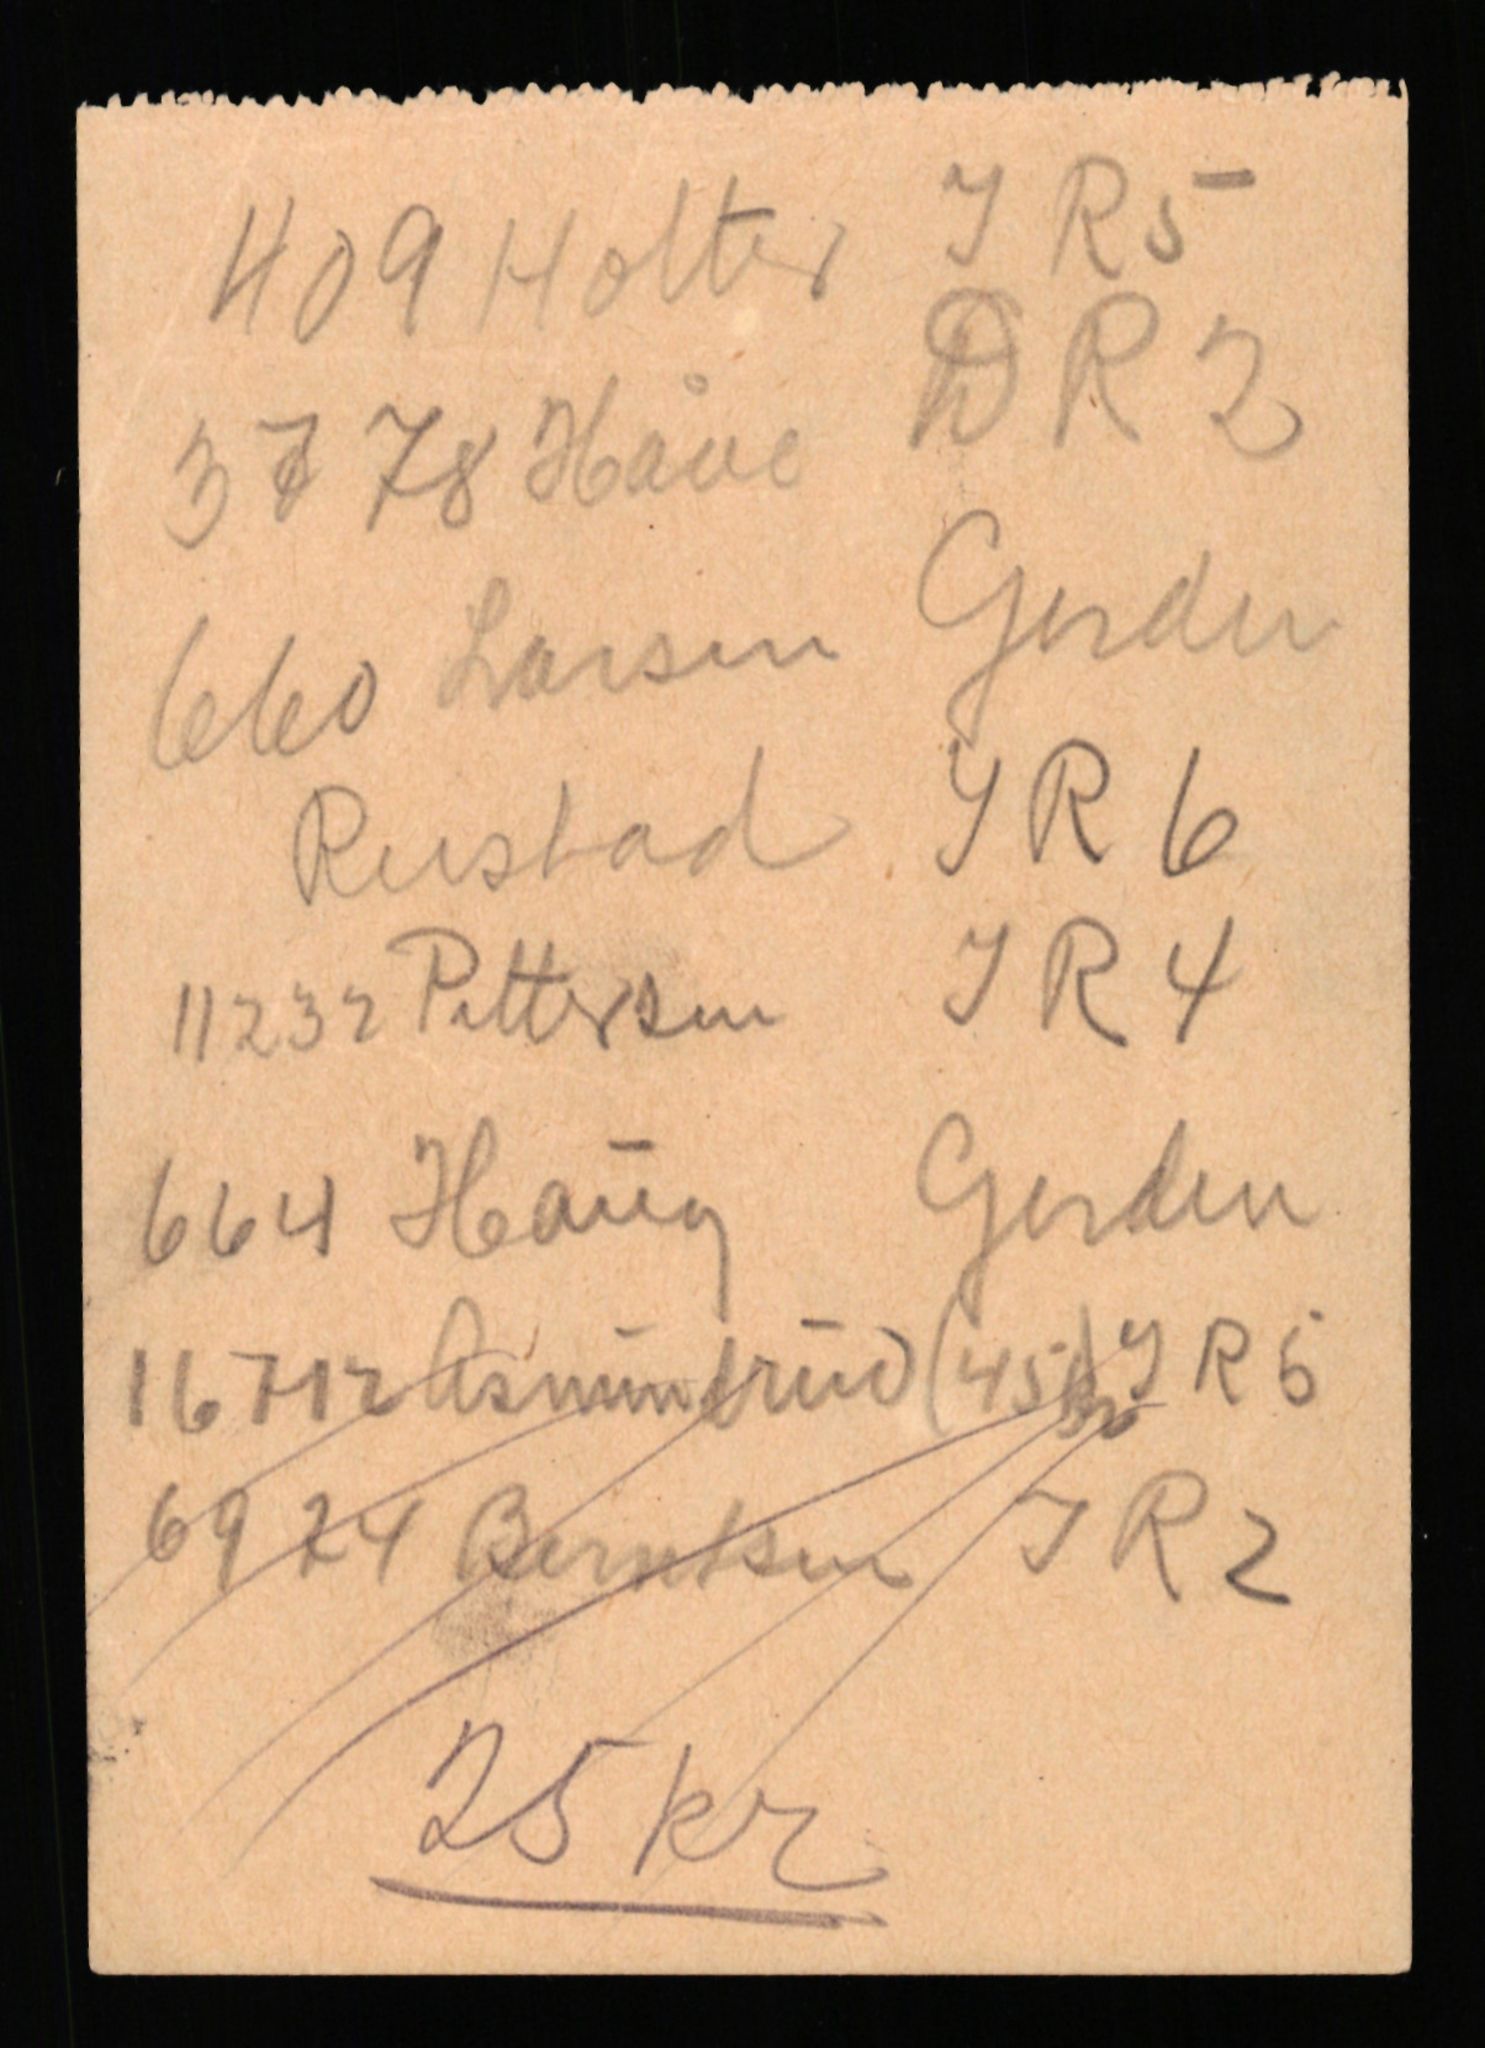 409 Holter IR5
3778 Håve DR2
660 Larsen Garden
Rustad IR 6
11232 Pettersen IR4
664 Haug Garden
16712 Asmundrud (45) IR5
6924 Berntsen IR2
25 kr